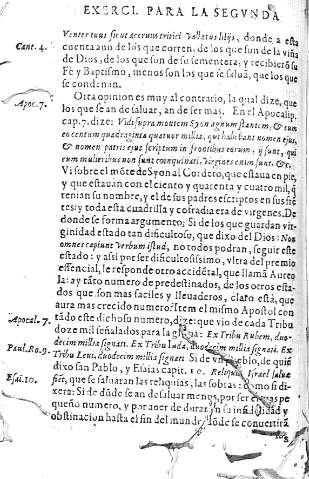 EXERCI. PARA LA SEGVNDA
Venter tuus sicut aceruus tritici vallatus lilijs, donde, a esta
Cant. 4.
cuenta aun de los que corren, de los que son de la viña
de Dios, de los que son de su sementera; y recibierō su
Fè y Baptismo, menos son los que se saluā, que los que
se condenan.
Otra opinion es muy al contrario, la qual dize, que
Apoc. 7.
los que se an de saluar, an de ser mas. En el Apocalip.
cap. 7. dize: Vidi supra montem Syon agnum stantem; & cum
eo centum quadraginta quatuor millia, qui habebant nomen ejus,
& nomen patris ejus scriptum in frontibus eorum: ij sunt, qui
cum mulieribus non sunt conquinati, virgines enim sunt. &c.
Vi sobre el mōte de Syon al Cordero, que estaua en pie,
y que estauan con el ciento y quarenta y cuatro mil, q̃
tenian su nombre, y el de sus padres escriptos en sus frē
tes: y toda esta cuadrilla y cofradia era de virgenes. De
donde se forma argumento; Si de los que guardan vir
ginidad estado tan dificultoso, que dixo del Dios: Non
omnes capiunt verbum istud, no todos podran, seguir este
estado: y assi por ser dificultosissimo, vltra del premio
essencial, le responde otro accidētal, que llamā Aureo
la: ay tāto numero de predestinados, de los otros esta-
dos que son mas faciles y lleuaderos, claro està, que
aura mas crecido numero. Item el mismo Apostol con
Apocal. 7.
tādo este dichoso numero, dize: que vio de cada Tribu
doze mil señalados para la gloria: Ex Tribu Ruben, duo-
decim millia signati. Ex Tribu Iuda, duodecim millia signati. Ex
Paul. Ro. 9.
Tribu Leui, duodecim millia signati. Si de vn pueblo, de quiē
dixo san Pablo, y Esaias capit. 10. Reliquiæ Israel saluæ
Esai. 10.
fiēt, que se saluaran las reliquias, las sobras: como si di-
xera: Si de dōde se an de saluar menos, por ser en tan pe
queño numero, y por aner de durar en su infidelidad y
obstinacion hasta el fin del mundo, dōde se conuertirā